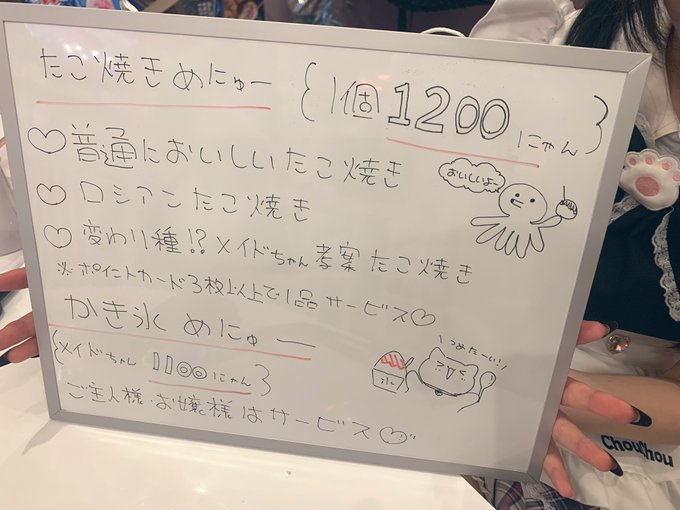 たこ焼きめにゅー {1個1200にゃん}
♡普通においしいたこ焼き
おいしいよー
♡ロシアンたこ焼き
♡変わり種!?メイドちゃん考案たこ焼き
※ポイントカード3枚以上で1品サービス♡
かき氷めにゅー
{メイドちゃん 1100にゃん}
\つめたーい!/
氷
ご主人様・お嬢様はサービス♡
ChouChou